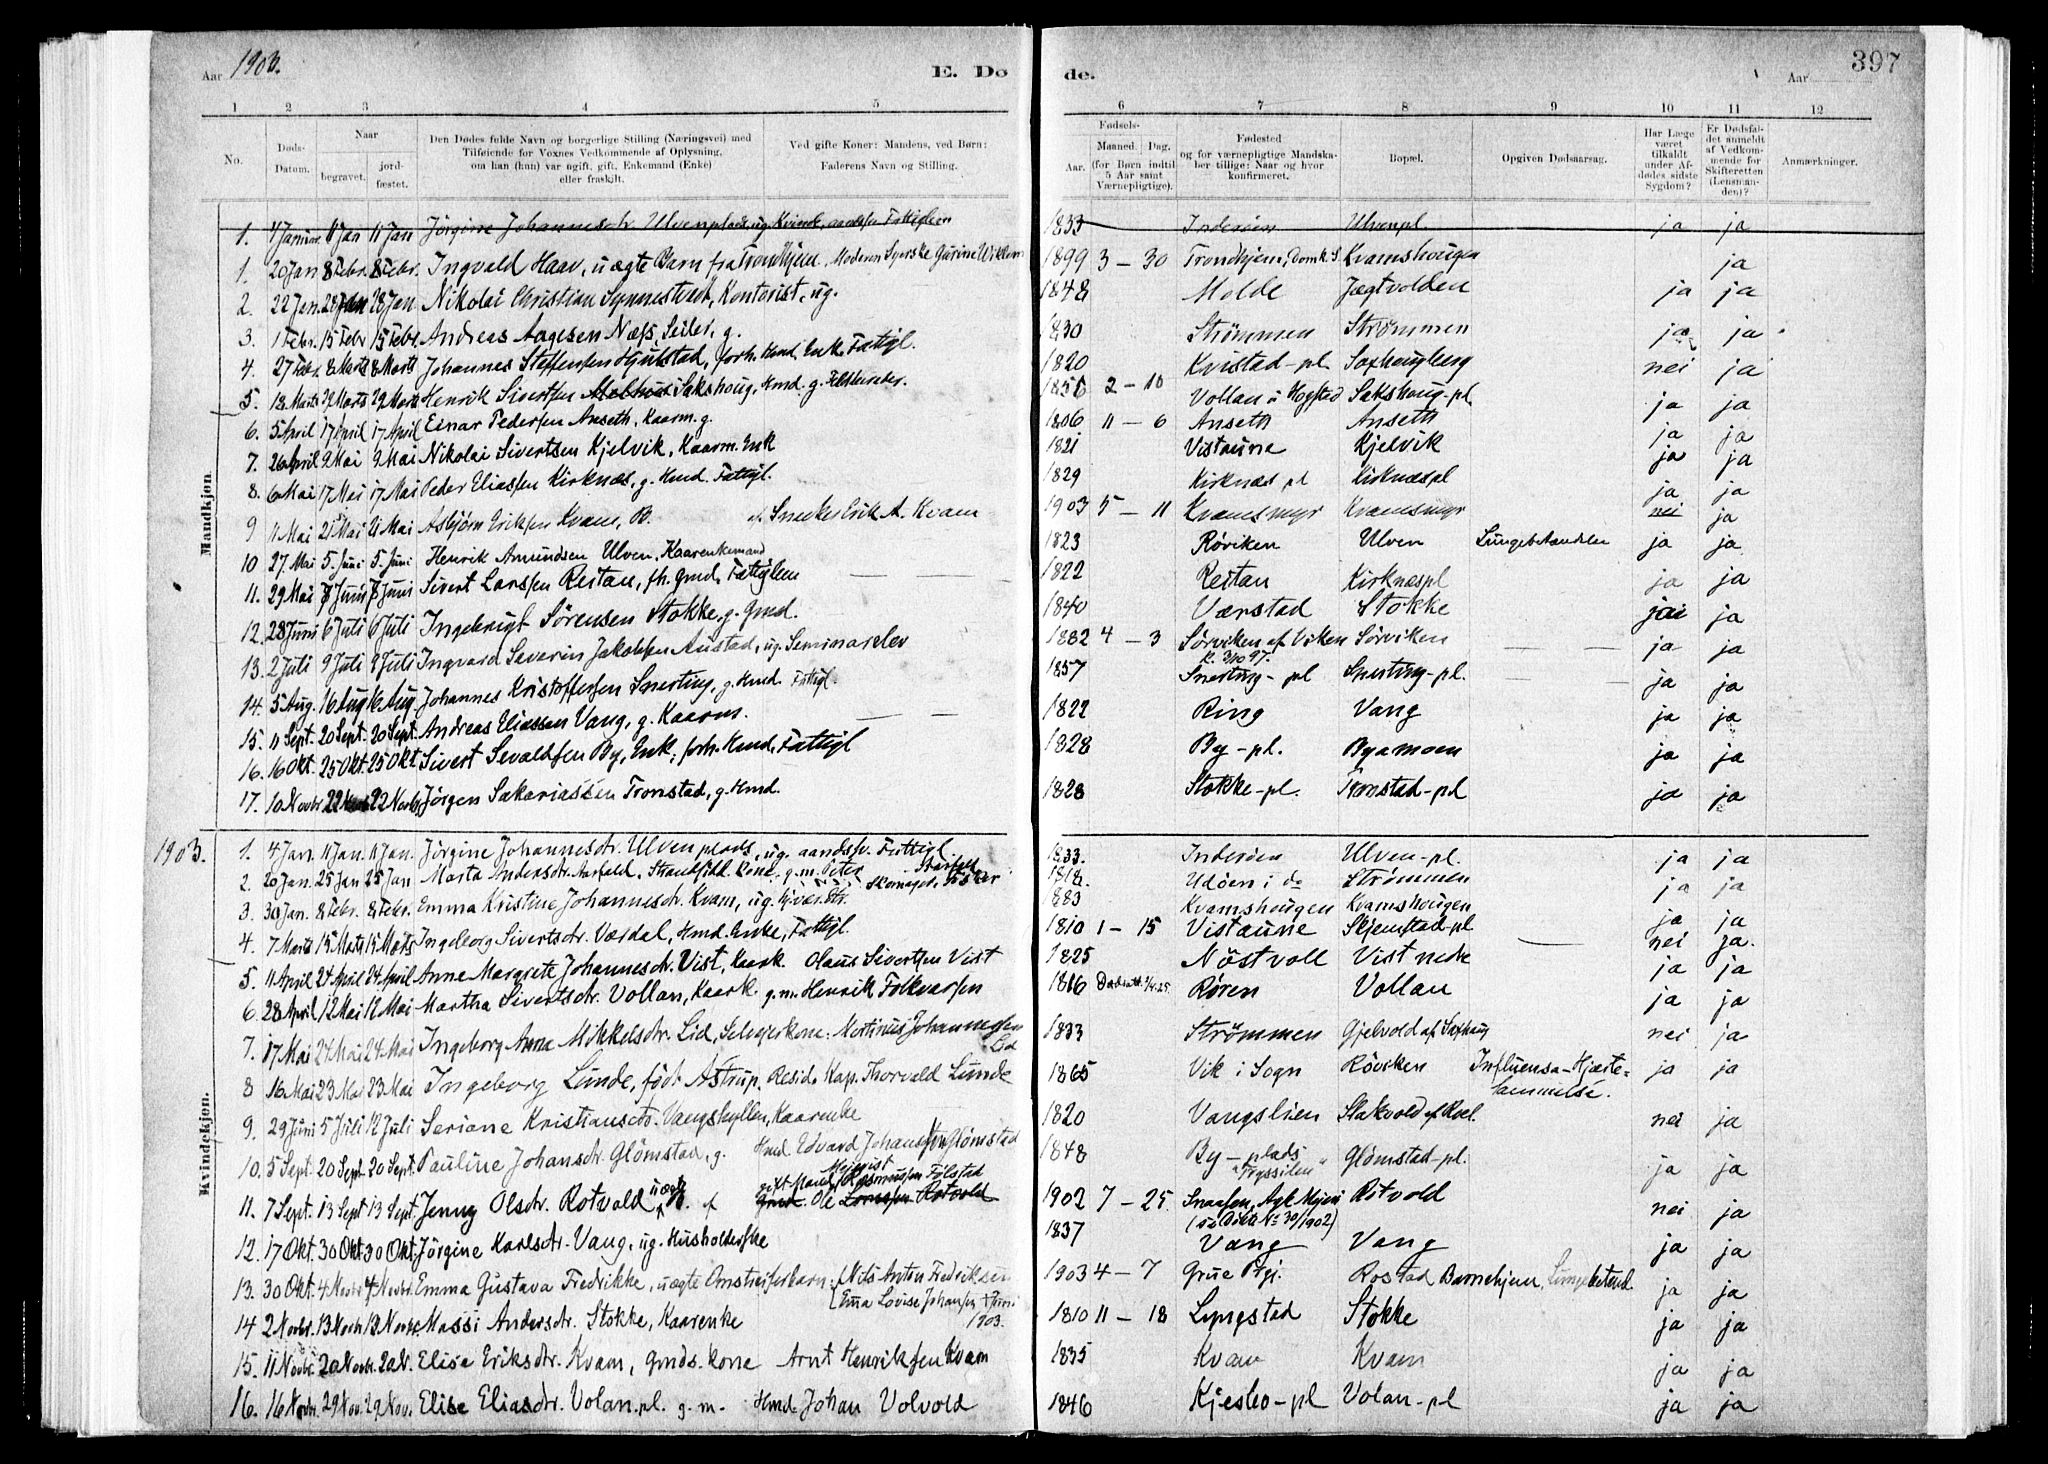 Aar 1903. E. Dø de. Aar 397
1 2 3 4 5 6 7 8 9 10 11 12
No.
Døds-Datum.
Naar begravet. jordfæstet.
Den Dødes fulde Navn og borgerlige Stilling (Næringsvei) med Tilføiende for Voxnes Vedkommende af Oplysning, om han (hun) var ugift, gift, Enkemand (Enke) eller fraskilt.
Ved gifte Koner: Mandens, ved Børn: Faderens Navn og Stilling.
Fødsels- Aar. Maaned. Dag. (for Børn indtil 5 Aar samt Værnepligtige).
Fødested og for værnepligtige Mandskaber tillige: Naar og hvor konfirmeret.
Bopæl.
Opgiven Dødsaarsag.
Har Læge været tilkaldt under Afdødes sidste Sygdom?
Er Dødsfaldet anmeldt af Vedkommende for Skifteretten (Lensmanden)?
Anmærkninger.
Mandkjøn.
1. 4 Januar 11 Jan 11 Jan Jørgine Johannesdr. Ulvenplads, ug. Kvinde, Fattiglem 1833 Inderøen Ulvenpl. ja ja
1. 20 Jan 8 Febr. 8 Febr. Ingvald Haav, uægte Barn fra Trondhjem. Moderen Syerske Gurine Wiklem 1899 3 – 30 Trondhjem, Domk. S. Kvamshougen ja
2. 22 Jan. 28 Jan 28 Jan Nikolai Christian Synnestvedt, Kontorist, ug. 1848 Molde Jægtvolden ja ja
3. 1 Febr. 15 Febr 15 Febr. Andreas Aagesen Næss, Seiler, g. 1830 Strømmen Strømmen ja ja
4. 27 Febr. 8 Marts 8 Marts Johannes Steffensen Hjulstad, forh. Hmd, Enk. Fattigl. 1820 Kvistad-pl Saxhougberg nei ja
5. 18 Marts 29 Marts 29 Marts Henrik Sivertsen Sakshoug, Hmd. g. 1856 2 – 10 Vollan i Hogstad Sakshoug-pl. ja ja
6. 5 April 17 April 17 April Einar Pedersen Anseth, Kaarm. g. 1806 11 – 6 Anseth Anseth ja ja
7. 26 April 9 Mai 9 Mai Nikolai Sivertsen Kjelvik, Kaarm. Enk 1821 Vistaune Kjelvik ja ja
8. 6 Mai 17 Mai 17 Mai Peder Eliassen Kirknæs, g. Hmd. Fattigl. 1829 Kirknæs pl Kirknæspl ja ja
9 11 Mai 21 Mai 21 Mai Asbjørn Eriksen Kvam, B. af Snecker Erik A. Kvam 1903 5 – 11 Kvamsmyr Kvamsmyr nei ja
10 27. Mai 5. Juni 5. Juni Henrik Amundsen Ulven, Kaarenkemand 1823 Røviken Ulven Lungebetændelse ja ja
11. 29 Mai 7 Juni 7 Juni Sivert Larssen Reitan, fh. Gmd, Fattiglem 1822 Reitan Kirknespl ja ja
12. 28 Juni 6 Juli 6 Juli Ingebrigt Sørensen Stokke, g. Gmd. 1840 Værstad Stokke ja ja
13. 2 Juli 9 Juli 9 Juli Ingvard Severin Jakobsen Austad, ug. Seminarelev 1882 4 – 3 Sørviken af Viken Sørviken ja ja
k. 3/10 97.
14. 5 Aug. 16 Aug 16 Aug. Johannes Kristoffersen Snerting, g. Hmd. Fattigl. 1857 Snerting-pl Snerting-pl. ja ja
15. 11 Sept. 20 Sept. 20 Sept. Andreas Eliassen Vang, g. Kaarm. 1822 Ring Vang ja ja
16. 16 Okt. 25 Okt. 25 Okt. Sivert Sevaldsen By, Enk; forh. Hmd, Fattigl 1828 By-pl. Byamoen ja ja
17. 10 Novbr. 22 22 Novbr. Jørgen Sakariassen Tronstad, g. Hmd. 1828 Stokke-pl. Tronstad-pl ja ja
1903. Kvindekjøn.
1. 4 Jan. 11 Jan. 11 Jan. Jørgine Johannesdr. Ulvenplads, ug. aandssv. Fattigl. 1833. Inderøen Ulven-pl. ja ja
2. 20 Jan. 25 Jan 25 Jan Marta Andersdr. Aarfald, Kone g. m. Peter Skomager 1818. Udøen i do Strømmen ja ja
3. 30 Jan. 8 Febr. 8 Febr. Emma Kristine Johannesdr. Kvam, ug. 883 Kvamshougen Kvamshougen ja ja
4. 7 Marts 15 Marts 15 Marts Ingeborg Sivertsdr. Værdal, Hmd. Enke, Fattigl. 1810 1 – 15 Vistaune Skjemstad-pl nei ja.
5. 11 April 24 April 24 April Anne Margrete Johannesdr. Vist, Kaark. Olaus Sivertsen Vist 1825 Nøstvoll Vist nedre ja ja
6. 28 April 12 Mai 12 Mai Martha Sivertsdr. Vollan, Kaark. g. m. Henrik Folkvarsen 1816 Røren Vollan ja ja
7. 17 Mai 24 Mai 24 Mai Ingeborg Anna Mikkelsdr. Lid, Selvejerkone: Martinus Johannessen Lid 1833 Strømmen Gjelvold af Saxhaug nei ja
8 16 Mai 23 Mai 23 Mai Ingeborg Lunde, født Astrup. Resid. Kap. Thorvald Lunde 1865 Vik i Sogn Røviken Influensa–Hjærte-lammelse. ja ja
9. 29 Juni 5 Juli 12 Juli Seriane Kristiansdr. Vangshyllen, Kaarenke 1820 Vangslien Stakvold af Roel. nei ja
10. 5 Sept. 20 Sept. 20 Sept. Pauline Johansdr. Glømstad, g. Hmd Edvard Johansen Glømstad 1848 By-plads "Tryssilen" Glømstad-pl. ja ja
11. 7 Sept. 13 Sept 13 Sept. Jenny Olsdr. Rotvold uægte B. af gift Mand, Mejerist Rasmussen Følstad Gmd. Ole Rotvold 1902 7 – 25 Snaasen, Rotvold nei ja
(se Døbte No 30/1902)
12. 17 Okt. 30 Okt 30 Okt. Jørgine Karlsdr. Vang, ug. Husholderske 1837 Vang Vang ja ja
13. 30 Okt. 4 Novbr. 4 Novbr. Emma Gustava Fredrikke, uægte Omstreiferbarn: Nils Anton Fredriksen Ema Lovise Johansen 1903. 1903 4 – 7 Grue Prgj. Rostad Barnehjem, Lungebetænd. ja ja
14 2 Novbr. 13 Novbr. 13 Novbr. Massi Andersdr. Stokke, Kaarenke 1810 11 – 18 Lyngstad Stokke ja ja
15. 11 Novbr. 20 Novbr. 20 N. Elise Eriksdr. Kvam, Gmds. kone Arnt Henriksen Kvam 1835 Kvam Kvam ja ja
16. 16 Novbr. 29 Nov. 29 Nov. Elise Eliasdr. Volan-pl. g. m. Hmd. Johan Volvold 1846 Kjesbo-pl Volan-pl ja ja